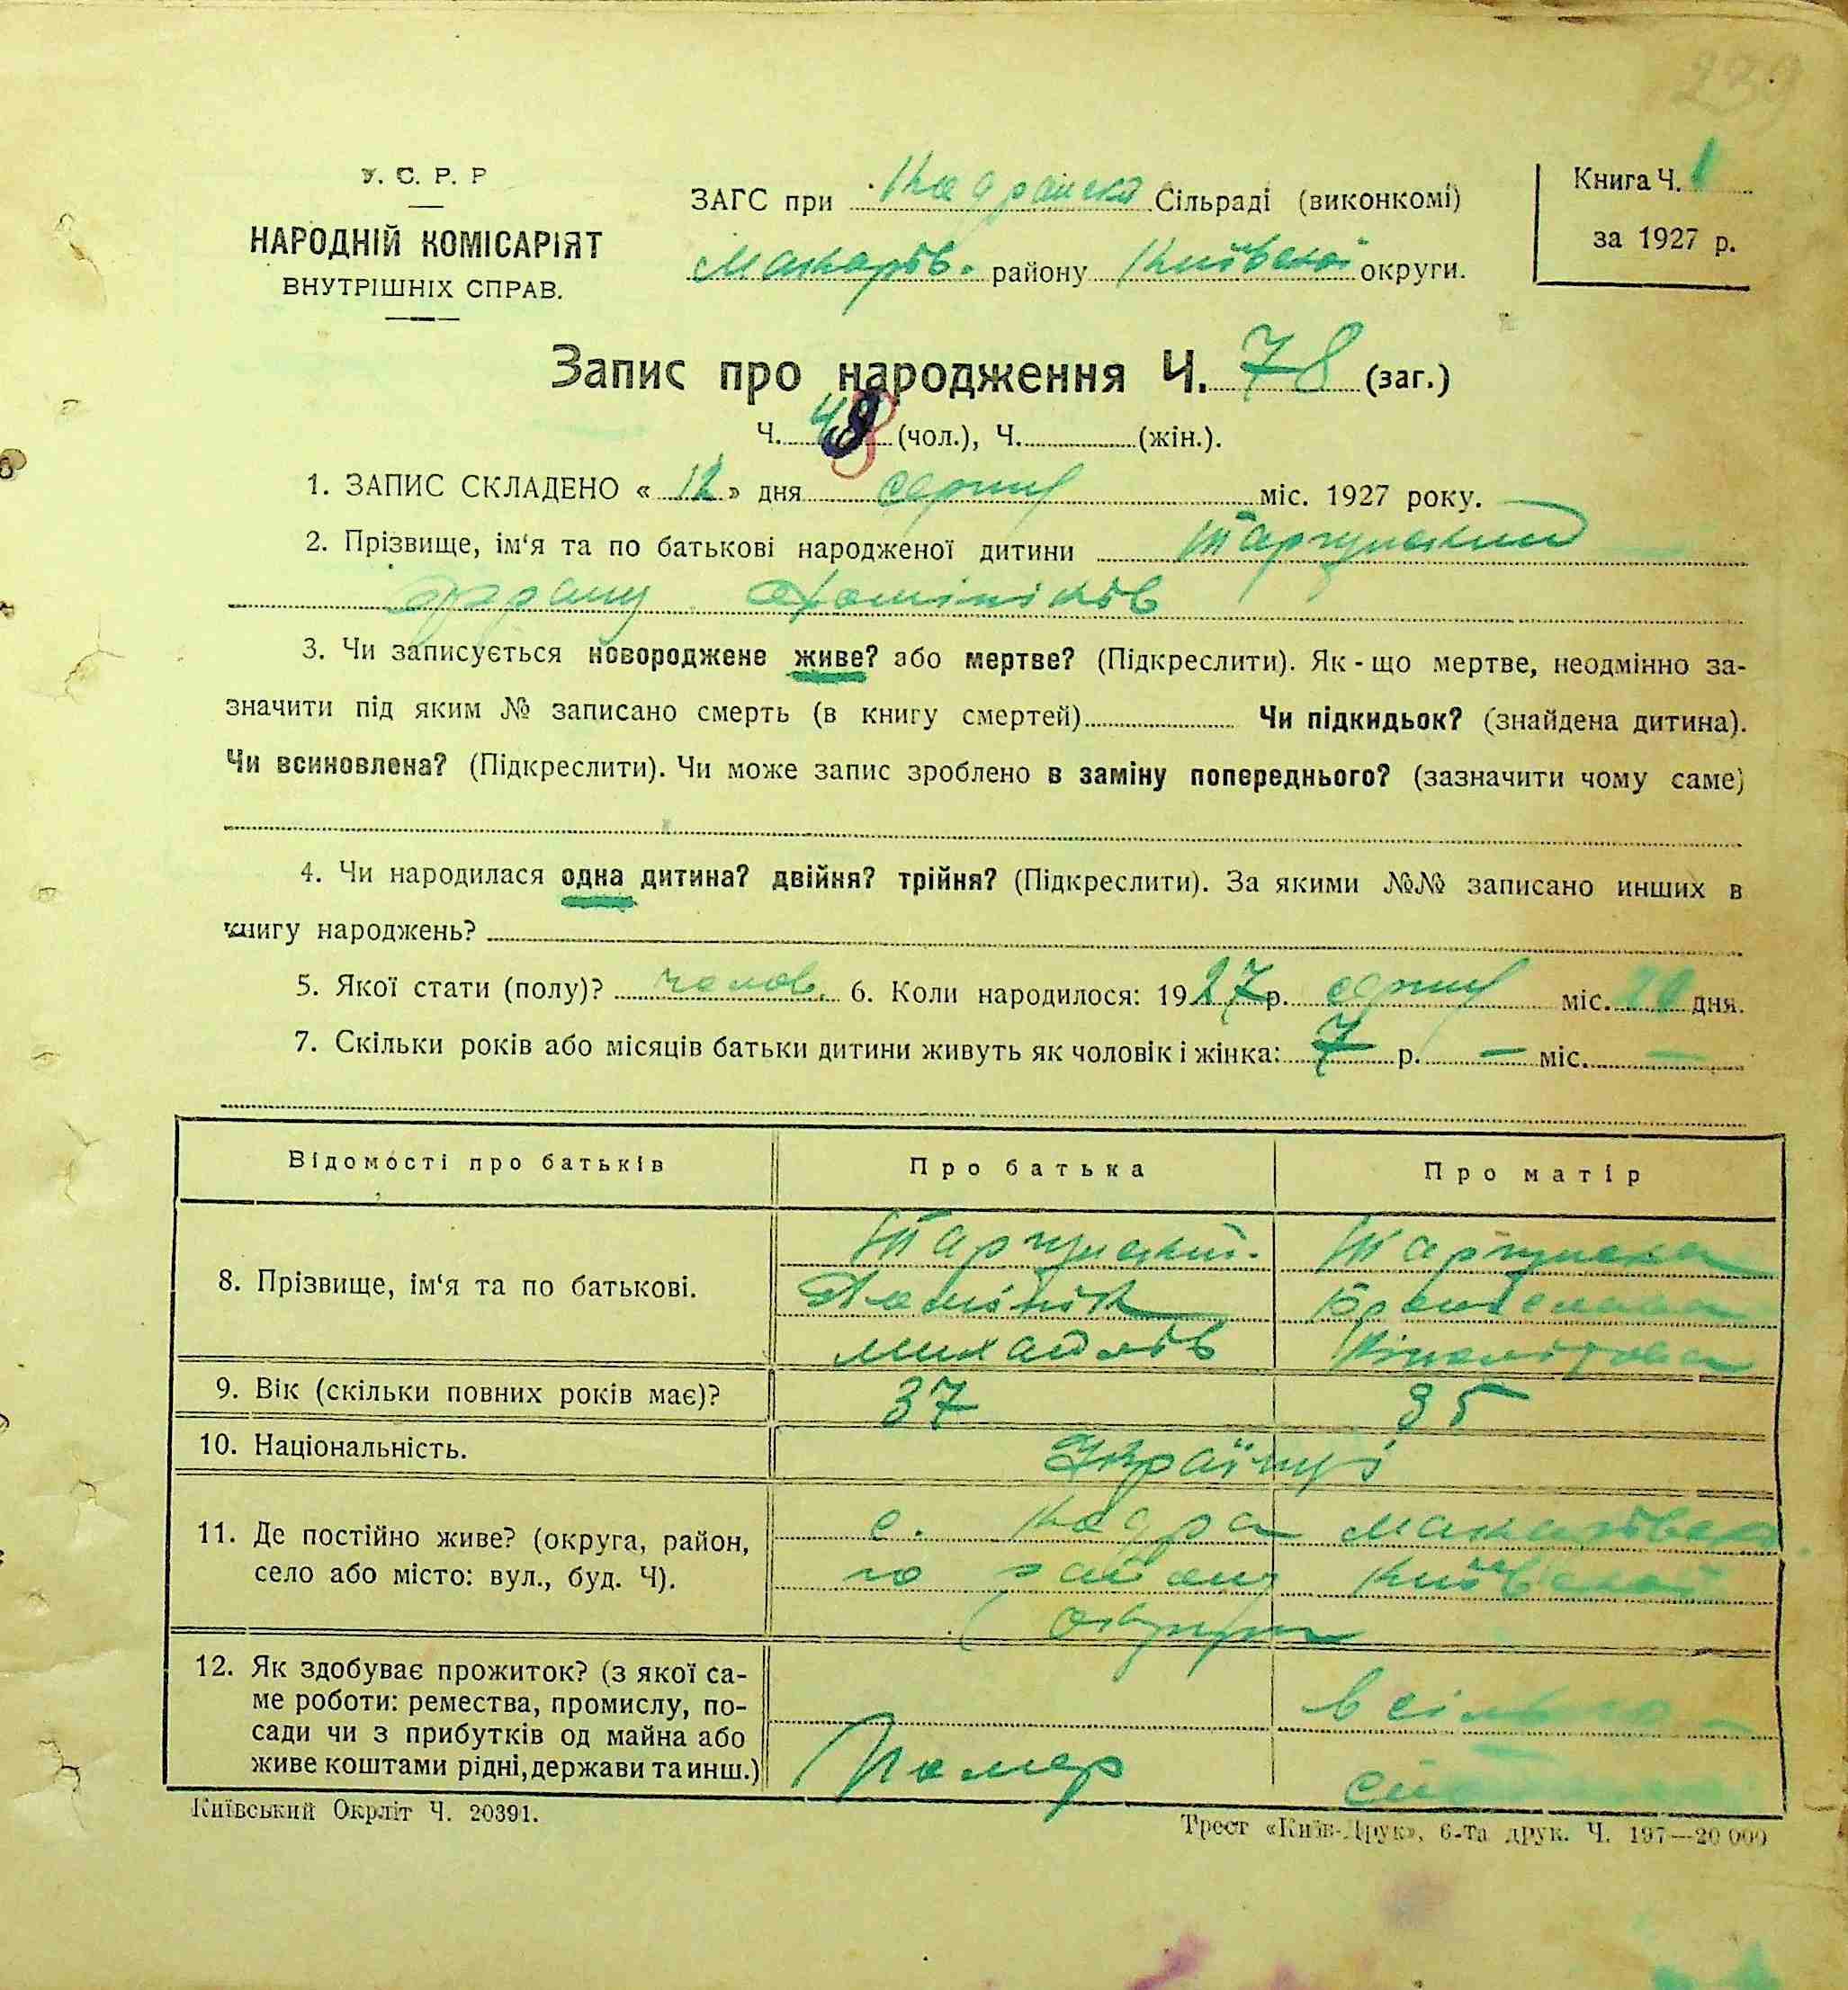 239
У. С. Р. Р
НАРОДНІЙ КОМІСАРІЯТ
ВНУТРІШНІХ СПРАВ.
ЗАГС при Кодранскій Сільраді (виконкомі)
Макарів. району Київської округи.
Книга Ч. 1
за 1927 р.
Запис про народження Ч. 78 (заг.)
Ч. 48 (чол.), Ч. (жін.).
1. ЗАПИС СКЛАДЕНО « 12 » дня серпня міс. 1927 року.
2. Прізвище, ім'я та по батькові народженої дитини Таргунский
Франц Домініків
3. Чи записується новороджене живе? або мертве? (Підкреслити). Як-що мертве, неодмінно за-
значити під яким № записано смерть (в книгу смертей) Чи підкидьок? (знайдена дитина).
Чи всиновлена? (Підкреслити). Чи може запис зроблено в заміну попереднього? (зазначити чому саме)
4. Чи народилася одна дитина? двійня? трійня? (Підкреслити). За якими №№ записано инших в
книгу народжень?
5. Якої стати (полу)? чолов. 6. Коли народилося: 1927 р. серпня міс. дня.
7. Скільки років або місяців батьки дитини живуть як чоловік і жінка: 7 р. — міс. —
Відомості про батьків
Про батька
Про матір
8. Прізвище, ім'я та по батькові.
Таргунский.
Домінік
Михайлів
Таргунска
Броніслава
9. Вік (скільки повних років має)?
37
35
10. Національність.
Українці
11. Де постійно живе? (округа, район,
село або місто: вул., буд. Ч).
с. Кодра Макарівско
го району Київської
округи
12. Як здобуває прожиток? (з якої са-
ме роботи: ремества, промислу, по-
сади чи з прибутків од майна або
живе коштами рідні, держави та инш.)
Помер
Київський Окрліт Ч. 20391.
Трест «Київ-Друк», 6-та друк. Ч. 197—20 000